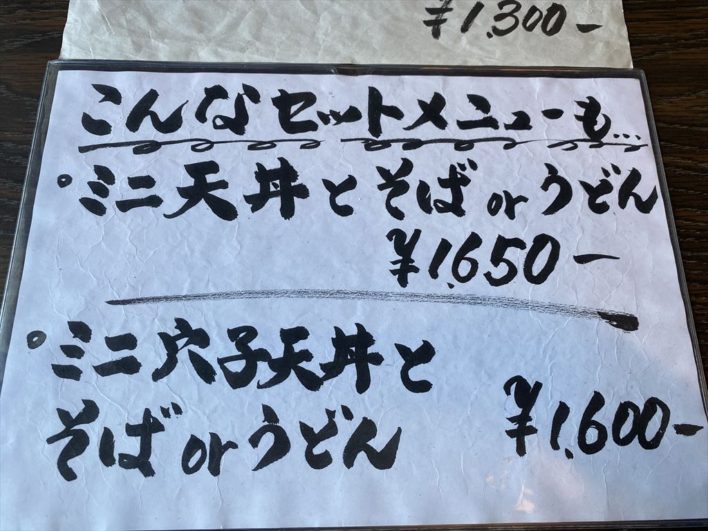 ¥1,300-
こんなセットメニューも...
○ミニ天丼とそばorうどん
¥1,650-
○ミニ穴子天丼と
そばorうどん
¥1,600-